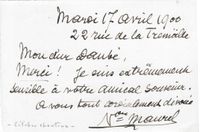 Mardi 17 avril 1900
22 rue de la Trémoille
Mon cher Danbé,
Merci ! Je suis extrêmement
sensible à votre amical souvenir.
A vous tout cordialement dévoué
Maurel